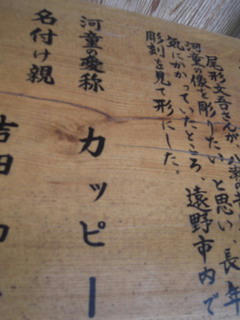 尾形文吾さんが、八
河童の像を彫りたいと思い、長年
気にかかっていたところ、遠野市内で
彫刻を見て形にした。
河童の愛称
カッピー
名付け親
吉田